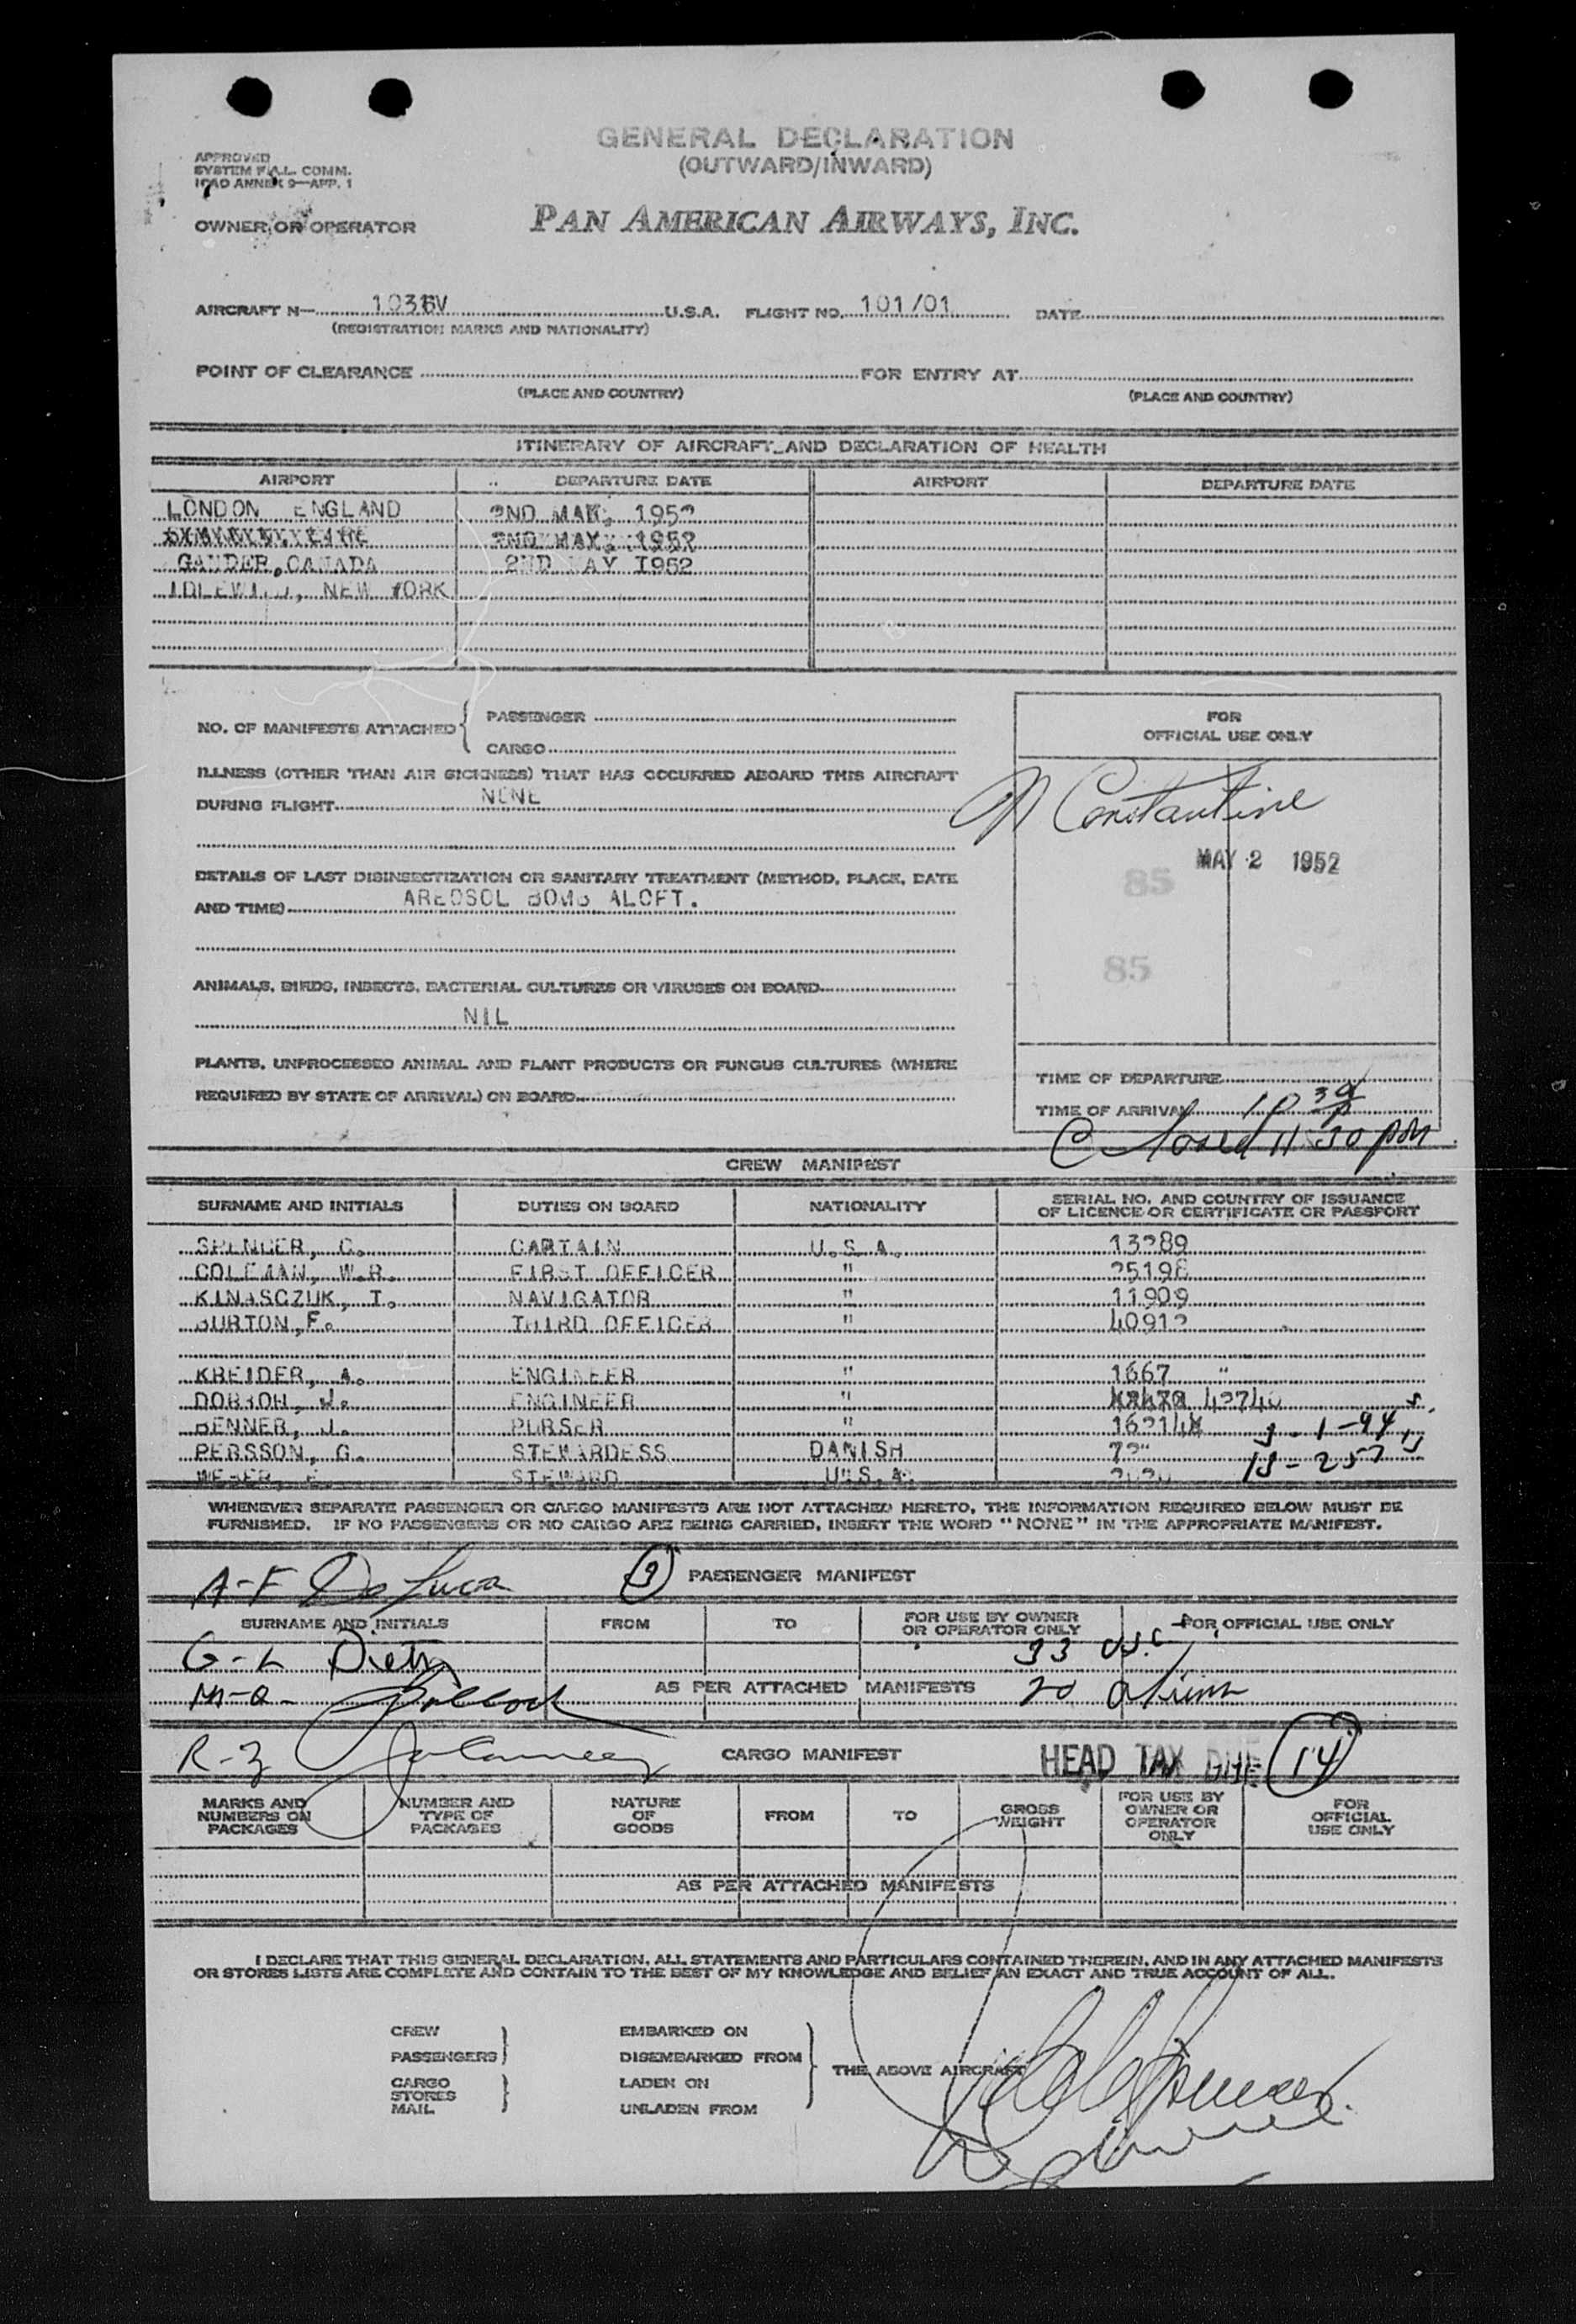 GENERAL DECLARATION
(OUTWARD/INWARD)
APPROVED
SYSTEM F.A.L. COMM.
ICAO ANNEX 9—APP. 1
OWNER OR OPERATOR PAN AMERICAN AIRWAYS, INC.
AIRCRAFT N— 1036V U.S.A. FLIGHT NO. 101/01 DATE
(REGISTRATION MARKS AND NATIONALITY)
POINT OF CLEARANCE FOR ENTRY AT
(PLACE AND COUNTRY) (PLACE AND COUNTRY)
ITINERARY OF AIRCRAFT AND DECLARATION OF HEALTH
AIRPORT DEPARTURE DATE AIRPORT DEPARTURE DATE
LONDON ENGLAND 2ND MAY, 1952
2ND MAY, 1952
GANDER, CANADA 2ND MAY 1952
IDLEWILD, NEW YORK
NO. OF MANIFESTS ATTACHED { PASSENGER
CARGO
ILLNESS (OTHER THAN AIR SICKNESS) THAT HAS OCCURRED ABOARD THIS AIRCRAFT
DURING FLIGHT NONE
DETAILS OF LAST DISINSECTIZATION OR SANITARY TREATMENT (METHOD, PLACE, DATE
AND TIME) AREOSOL BOMB ALOFT.
ANIMALS, BIRDS, INSECTS, BACTERIAL CULTURES OR VIRUSES ON BOARD
NIL
PLANTS, UNPROCESSED ANIMAL AND PLANT PRODUCTS OR FUNGUS CULTURES (WHERE
REQUIRED BY STATE OF ARRIVAL) ON BOARD
FOR
OFFICIAL USE ONLY
Constantine
MAY 2 1952
85
85
TIME OF DEPARTURE
TIME OF ARRIVAL 10
Closed 11 30 PM
CREW MANIFEST
SURNAME AND INITIALS DUTIES ON BOARD NATIONALITY SERIAL NO. AND COUNTRY OF ISSUANCE
OF LICENCE OR CERTIFICATE OR PASSPORT
SPENCER, C. CAPTAIN U.S.A. 13289
COLEMAN, W.R. FIRST OFFICER " 25198
KINASCZUK, T. NAVIGATOR " 11909
BURTON, F. THIRD OFFICER " 40912
KREIDER, A. ENGINEER " 1667 "
DOBROH, J. ENGINEER " 42740
BENNER, J. PURSER "
PERSSON, G. STEWARDESS DANISH
WEBER, STEWARD U.S.A.
WHENEVER SEPARATE PASSENGER OR CARGO MANIFESTS ARE NOT ATTACHED HERETO, THE INFORMATION REQUIRED BELOW MUST BE
FURNISHED. IF NO PASSENGERS OR NO CARGO ARE BEING CARRIED, INSERT THE WORD "NONE" IN THE APPROPRIATE MANIFEST.
A-F De Luca PASSENGER MANIFEST
SURNAME AND INITIALS FROM TO FOR USE BY OWNER
OR OPERATOR ONLY FOR OFFICIAL USE ONLY
G-L Dietz 33
M-Q Pollock AS PER ATTACHED MANIFESTS 20 aliens
R-Z CARGO MANIFEST HEAD TAX DUE 14
MARKS AND
NUMBERS ON
PACKAGES NUMBER AND
TYPE OF
PACKAGES NATURE
OF
GOODS FROM TO GROSS
WEIGHT FOR USE BY
OWNER OR
OPERATOR
ONLY FOR
OFFICIAL
USE ONLY
AS PER ATTACHED MANIFESTS
I DECLARE THAT THIS GENERAL DECLARATION, ALL STATEMENTS AND PARTICULARS CONTAINED THEREIN, AND IN ANY ATTACHED MANIFESTS
OR STORES LISTS ARE COMPLETE AND CONTAIN TO THE BEST OF MY KNOWLEDGE AND BELIEF AN EXACT AND TRUE ACCOUNT OF ALL.
CREW EMBARKED ON
PASSENGERS DISEMBARKED FROM
THE ABOVE AIRCRAFT
CARGO LADEN ON
STORES
MAIL UNLADEN FROM
Spencer